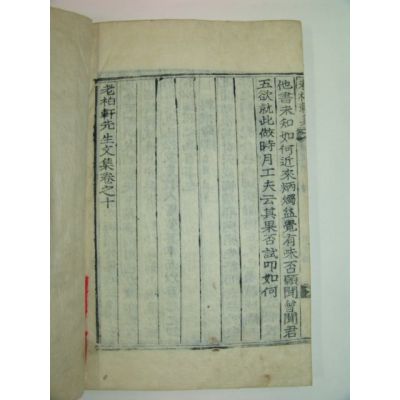 他書未知如何近來炳燭益覺有味否願聞曾聞君
五欲就此做時月工夫云其果否試叩如何
老柏軒先生文集卷之十